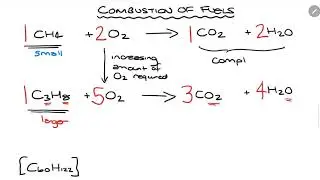 COMBUSTION OF FUELS
1 CH4 + 2 O2 → 1 CO2 + 2 H2O
small
increasing
amount of
O2 required
compl
1 C3H8 + 5 O2 → 3 CO2 + 4 H2O
larger
[C60H122]